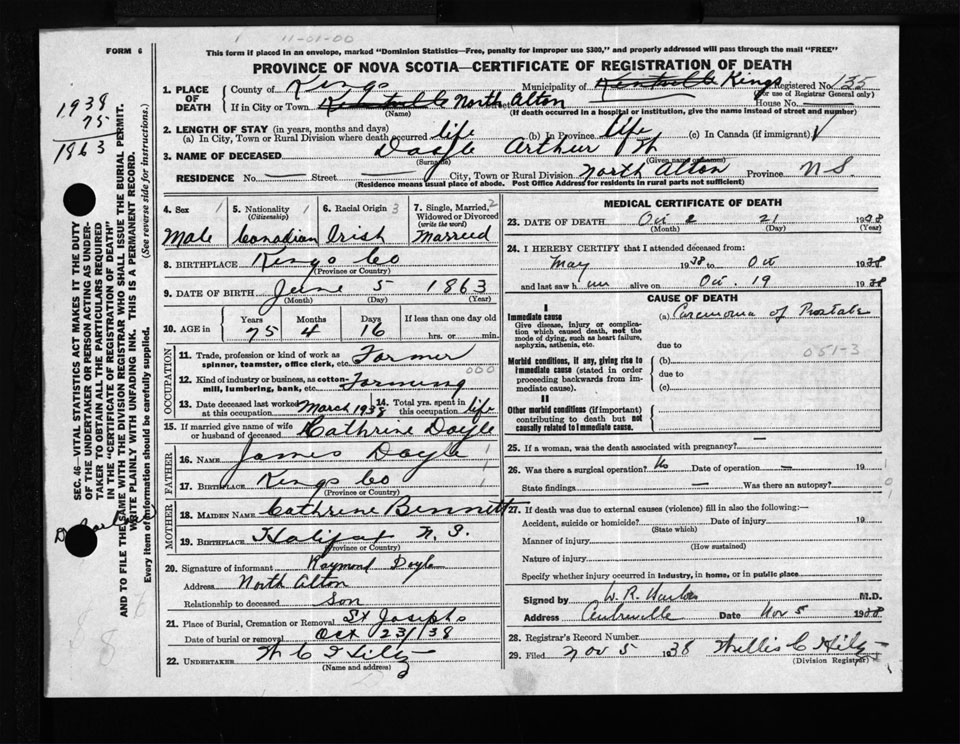 11-01-00
FORM 6
This form if placed in an envelope, marked "Dominion Statistics—Free, penalty for improper use $300," and properly addressed will pass through the mail "FREE"
PROVINCE OF NOVA SCOTIA—CERTIFICATE OF REGISTRATION OF DEATH
1938
75
1863
SEC. 46—VITAL STATISTICS ACT MAKES IT THE DUTY
OF THE UNDERTAKER OR PERSON ACTING AS UNDER-
TAKER TO OBTAIN ALL THE PARTICULARS REQUIRED
IN THE "CERTIFICATE OF REGISTRATION OF DEATH"
AND TO FILE THE SAME WITH THE DIVISION REGISTRAR WHO SHALL ISSUE THE BURIAL PERMIT.
WRITE PLAINLY WITH UNFADING INK. THIS IS A PERMANENT RECORD.
Every item of information should be carefully supplied. (See reverse side for instructions.)
1. PLACE OF DEATH County of Kings Municipality of Kentville Kings Registered No. 135
(For use of Registrar General only)
If in City or Town Kentville North Alton Street House No.
(Name) (If death occurred in a hospital or institution, give the name instead of street and number)
2. LENGTH OF STAY (in years, months and days)
(a) In City, Town or Rural Division where death occurred life (b) In Province life (c) In Canada (if immigrant)
3. NAME OF DECEASED Doyle Arthur
(Surname) (Given name or names)
RESIDENCE No. — Street — City, Town or Rural Division North Alton Province N S
(Residence means usual place of abode. Post Office Address for residents in rural parts not sufficient)
4. Sex 1 5. Nationality 1 (Citizenship) 6. Racial Origin 3 7. Single, Married, 2 Widowed or Divorced (write the word)
Male Canadian Irish Married
8. BIRTHPLACE Kings Co
(Province or Country)
9. DATE OF BIRTH June 5 1863
(Month) (Day) (Year)
10. AGE in Years Months Days If less than one day old
75 4 16 hrs. or min.
OCCUPATION
11. Trade, profession or kind of work as spinner, teamster, office clerk, etc. Farmer
000
12. Kind of industry or business, as cotton-mill, lumbering, bank, etc. Farming
13. Date deceased last worked at this occupation March 1938 14. Total yrs. spent in this occupation life
15. If married give name of wife or husband of deceased Cathrine Doyle
FATHER
16. NAME James Doyle
17. BIRTHPLACE Kings Co
(Province or Country)
MOTHER
18. MAIDEN NAME Cathrine Bennett
19. BIRTHPLACE Halifax N. S.
(Province or Country)
20. Signature of informant Raymond Doyle
Address North Alton
Relationship to deceased Son
21. Place of Burial, Cremation or Removal St Josephs
Date of burial or removal Oct 23/38
22. UNDERTAKER
(Name and address)
MEDICAL CERTIFICATE OF DEATH
23. DATE OF DEATH Oct 21 1938
(Month) (Day) (Year)
24. I HEREBY CERTIFY that I attended deceased from:
May 1938 to Oct 1938
and last saw h im alive on Oct. 19 1938
CAUSE OF DEATH
I
Immediate cause
Give disease, injury or complication which caused death, not the mode of dying, such as heart failure, asphyxia, asthenia, etc.
(a) Carcinoma of Prostate
due to
051-3
Morbid conditions, if any, giving rise to immediate cause (stated in order proceeding backwards from immediate cause).
(b)
due to
(c)
II
Other morbid conditions (if important) contributing to death but not causally related to immediate cause.
25. If a woman, was the death associated with pregnancy? —
26. Was there a surgical operation? No Date of operation — 19
State findings — Was there an autopsy?
27. If death was due to external causes (violence) fill in also the following:—
Accident, suicide or homicide? Date of injury 19
(State which)
Manner of injury
(How sustained)
Nature of injury
Specify whether injury occurred in industry, in home, or in public place
Signed by W. R. M.D.
Address Centreville Date Nov 5 1938
28. Registrar's Record Number
29. Filed Nov 5 1938 Willis C Hiltz
(Division Registrar)